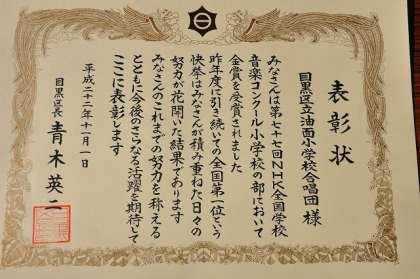 表彰状
目黒区立油面小学校合唱団様
みなさんは第七十七回NHK全国学校
音楽コンクール小学校の部において
金賞を受賞されました
昨年度に引き続いての全国第一位という
快挙はみなさんが積み重ねた日々の
努力が花開いた結果であります
みなさんのこれまでの努力を称える
とともに今後のさらなる活躍を期待して
ここに表彰します
平成二十二年十月一日
目黒区長 青木英二